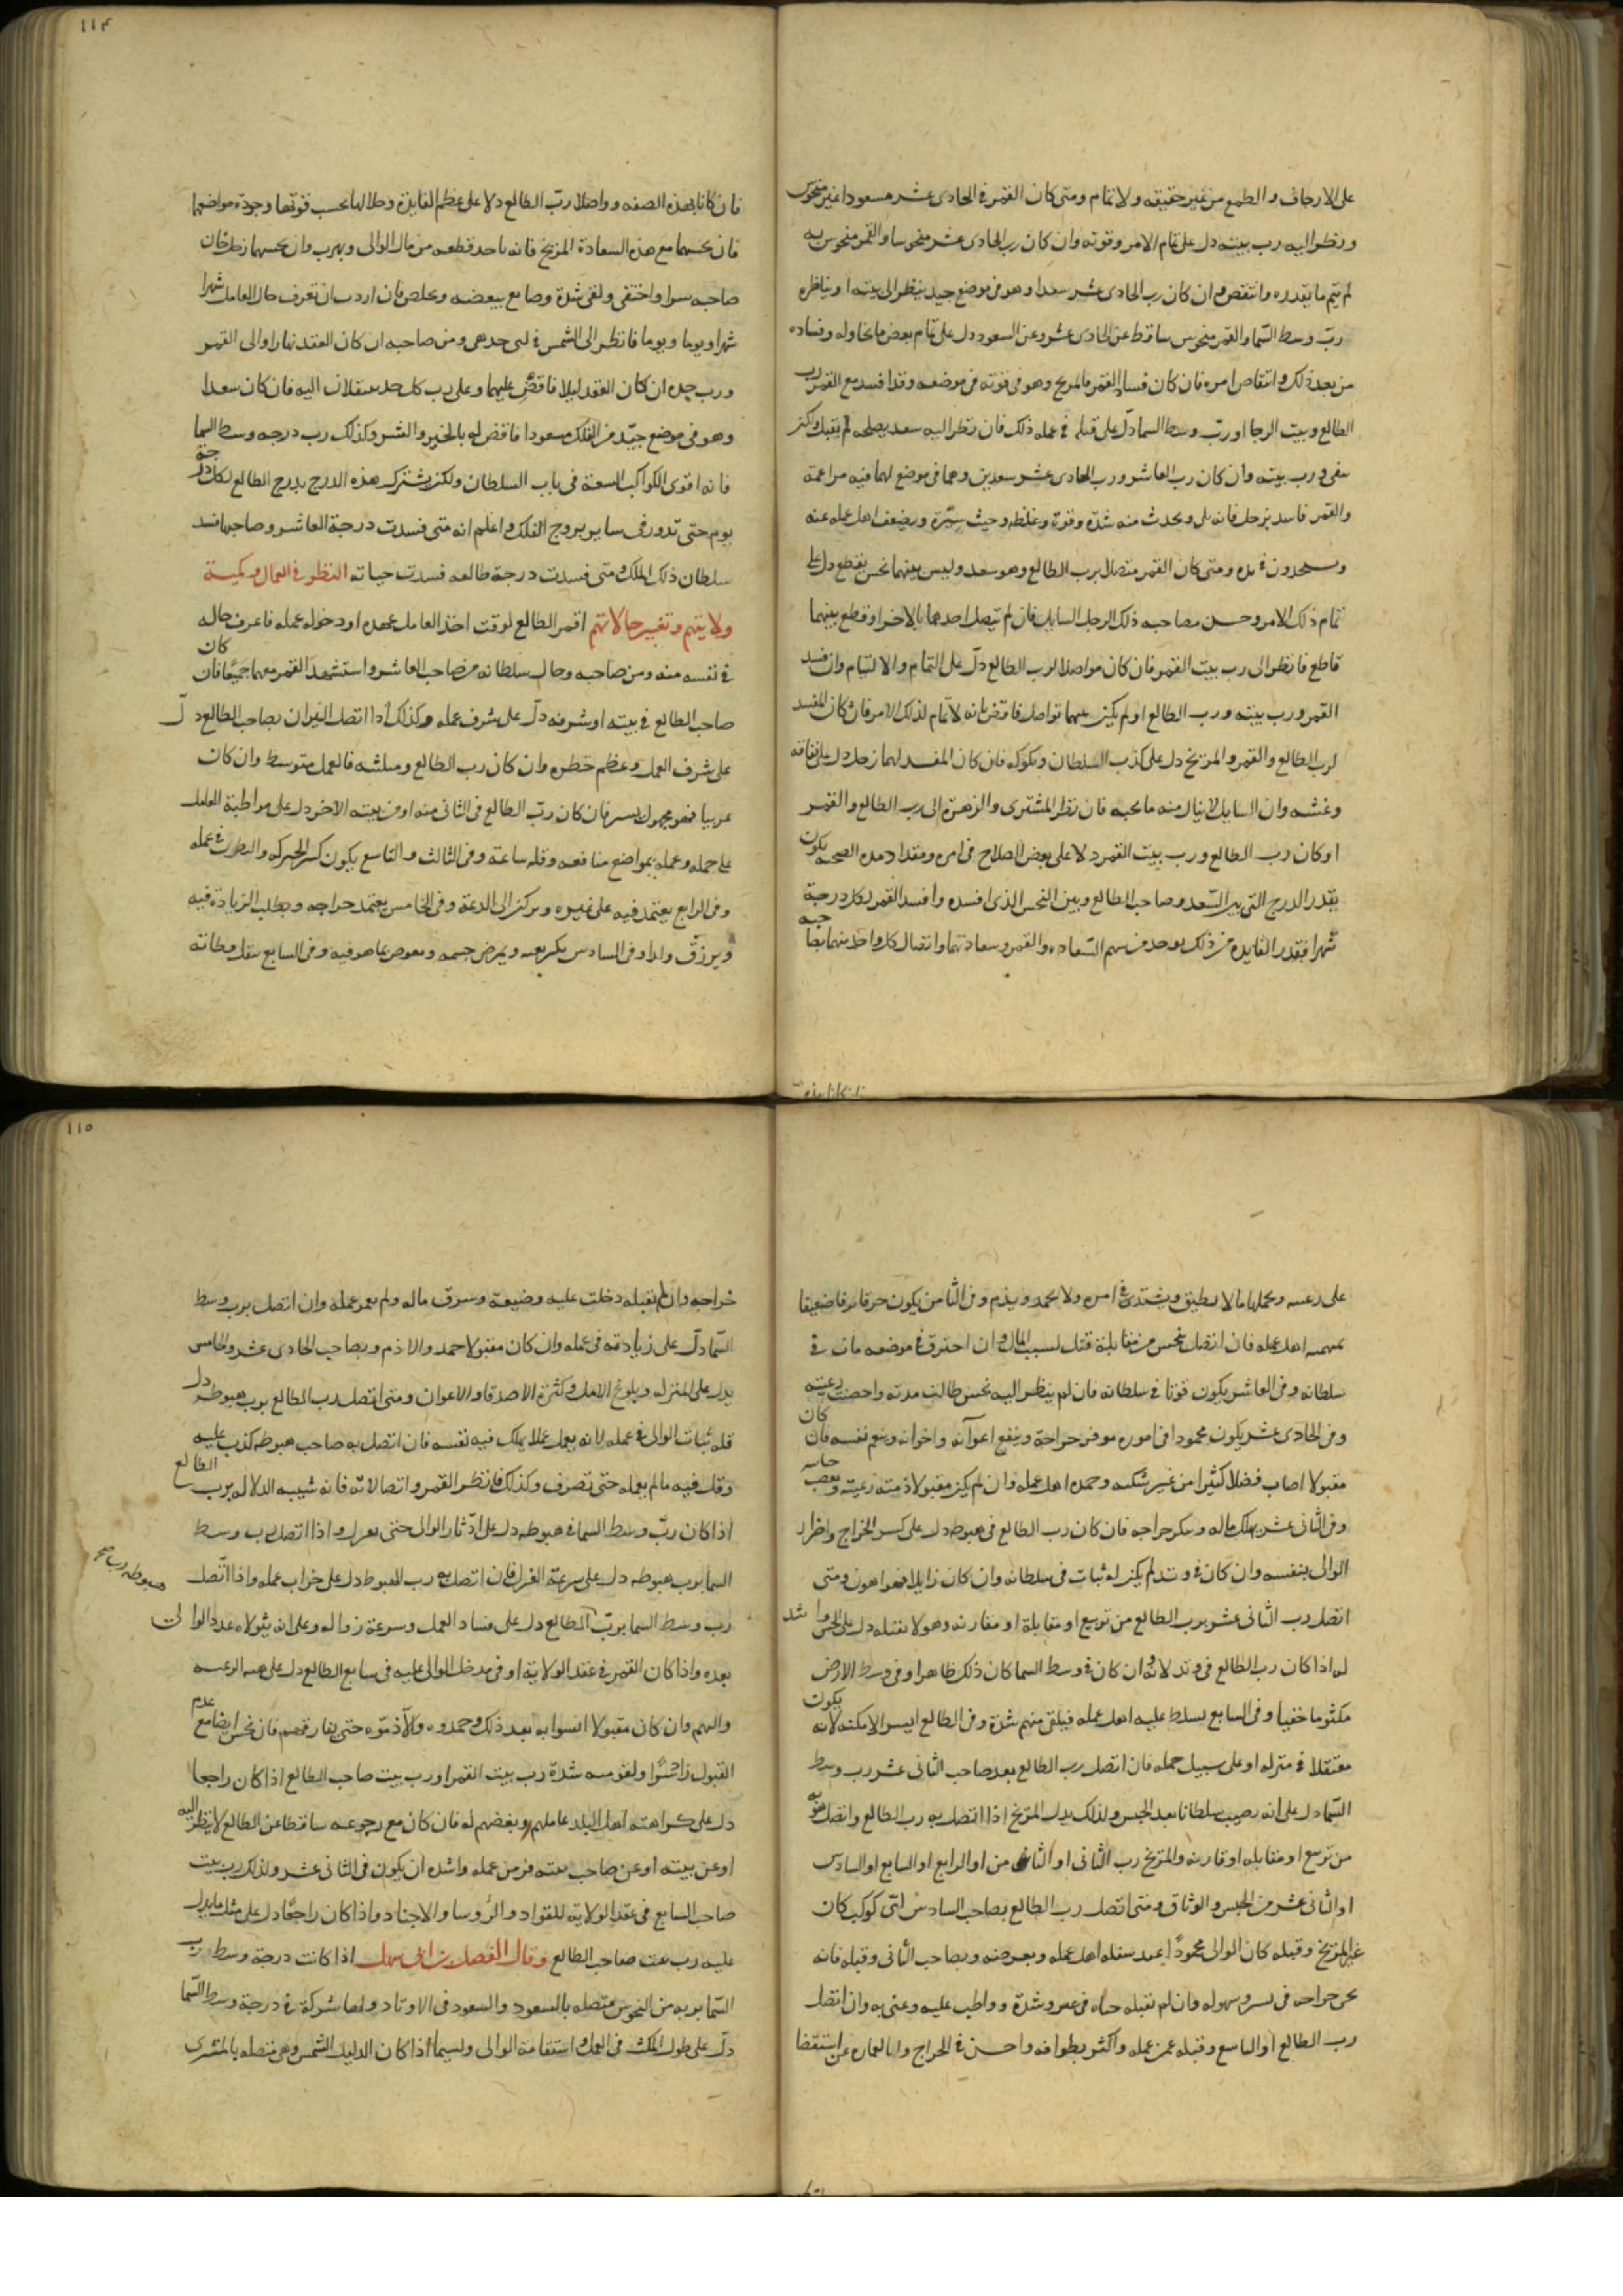 على الارجاف والطمع من غير حقيقه ولا تمام ومتى كان القمر فى الحادى عشر مسعودا غير منحوس
ونظر اليه رب بيته دل على تمام الامر وقوته وان كان رب الحادى عشر منحوسا والقمر منحوس به
لم يتم ما يقدره وانتقص وان كان رب الحادى عشر سعدا وهو فى موضع جيد ينظر الى بيته او يناظره
رب وسط السما والقمر منحوس ساقط عن الحادى عشر وعن السعود دل على تمام بعض ما يحاوله وفساده
من بعد ذلك وانتقاص امره فان كان فساد القمر فالمريخ وهو فى قوته فى موضعه وقد افسد مع القمر رب
الطالع وبيت الرجا او رب وسط السما دل على قتله فى عمله ذلك فان نظر اليه سعد يصلحه لم يقتل ولكن
رب بيته وان كان رب العاشر ورب الحادى عشر سعدين وهما فى موضع لهما فيه مزاعمة
والقمر فاسد بزحل فانه يلى ويحدث منه شدة وقوة وغلظه وخبث سيرة ويضعف اهل عمله عنه
ومتى كان القمر متصل برب الطالع وهو سعد وليس بينهما نحس يقطع دل على
تمام ذلك الامر وحسن مصاحبه ذلك الرجل السايل فان لم يتصل احدهما بالاخر او قطع بينهما
قاطع فانظر الى رب بيت القمر فان كان مواصلا لرب الطالع دل على التمام والالتيام وان فسد
القمر ورب بيته ورب الطالع او لم يكن بينهما تواصل فاقض بانه لا تمام لذلك الامر فان كان المفسد
لرب الطالع والقمر والمريخ دل على كذب السلطان ونكوله فان كان المفسد لهما زحل دل على نفاقه
وغشه وان السايل لا ينال منه ما يحبه فان نظر المشترى والزهرة الى رب الطالع والقمر
او كان رب الطالع ورب بيت القمر دلا على بعض الصلاح فى امره ومقدار مدة الصحبه يكون
بقدر الدرج التى بين السعد وصاحب الطالع وبين النحس الذى افسده وافسد القمر لكل درجة
شهرا فبقدر الفايدة من ذلك يوخذ من سهم السعاده والقمر وسعادتهما واتصال كل واحد منهما بصاحبه
فان كانا بهذه الصفه وواصلا رب الطالع دلا على عظم الفايدة وحلالها بحسب قوتها وجودة مواضعها
فان نحسهما مع هذه السعادة المريخ فانه ياخذ قطعه من مال الوالى ويهرب وان نحسهما زحل خان
صاحبه سرا واختفى ولقى شدة وصانع ببعضه وتخلص فان اردت ان تعرف حال العامل شهرا
شهرا ويوما ويوما فانظر الى الشمس فى اى حد هى ومن صاحبه ان كان العقد نهارا والى القمر
ورب حده ان كان العقد ليلا فاقض عليهما وعلى رب كل حد ينتقلان اليه فان كان سعدا
وهو فى موضع جيد من الفلك مسعودا فاقض له بالخير والشر وكذلك رب درجه وسط السما
فانه اقوى الكواكب السبعة فى باب السلطان ولكن يشترك هذه الدرج بدرج الطالع لكل درجة
يوم حتى تدور فى ساير بروج الفلك واعلم انه متى فسدت درجة العاشر وصاحبها فسد
سلطان ذلك الملك ومتى فسدت درجة طالعه فسدت حياته النظر فى العمال وكمية
ولايتهم وتغيير حالاتهم اقم الطالع لوقت اخذ العامل عهده او دخوله عمله فاعرف حاله
فى نفسه منه ومن صاحبه وحال سلطانه من صاحب العاشر واستشهد القمر معهما جميعا فان كان
صاحب الطالع فى بيته او شرفه دل على شرف عمله وكذلك اذا اتصل النيران بصاحب الطالع دل
على شرف العمل وعظم خطره وان كان رب الطالع ومثلثه فالعمل متوسط وان كان
غريبا فهو مجهول يسر فان كان رب الطالع فى الثانى منه او فى بيته الاخر دل على مواظبة العامل
على حمله وعمله بمواضع منافعه وقله ساعة وفى الثالث والتاسع يكون كثير الحركه والنظر فى عمله
وفى الرابع يعتمد فيه على غيره ويركن الى الدعة وفى الخامس يعتمد خراجه ويطلب الزيادة فيه
ويرزق ولدا وفى السادس يكربه ويمرض جسمه عما هو فيه وفى السابع
على رعيته ويحملها ما لا يطيق ويشتد فى امره ولا يحمد ويذم وفى الثامن يكون
اهل عمله فان اتصل بنحس من مقابلة قتل لسبب المال وان احترق فى موضعه مات فى
سلطانه وفى العاشر يكون قويا فى سلطانه فان لم ينظر اليه نحس طالت مدته واخصبت رعيته
وفى الحادى عشر يكون محمودا فى اموره موفر خراجه وينفع اعوانه واخوانه وينعم نفسه فان كان
مقبولا اصاب فضلا كثيرا من غير شكيه وحمده اهل عمله وان لم يكن مقبولا ذمته رعيته
وفى الثانى عشر يهلك ماله وينكسر خراجه فان كان رب الطالع فى هبوطه دل على كسر الخراج واضرار
الوالى بنفسه وان كان فى وتد لم يكن له ثبات فى سلطانه وان كان زايلا فهو اهون ومتى
اتصل رب الثانى عشر برب الطالع من تربيع او مقابلة او مقارنه وهو لا يقبله دل على الحبس واشد
له اذا كان رب الطالع فى وتد لانه ان كان فى وسط السما كان ذلك ظاهرا وفى وسط الارض
مكتوما خفيا وفى السابع يسلط عليه اهل عمله فيلقى منهم شدة وفى الطالع ايسر الامكنه لانه يكون
معتقلا فى منزله او على سبيل حمله فان اتصل رب الطالع بعد صاحب الثانى عشر برب وسط
السما دل على انه يصيب سلطانا بعد الحبس وكذلك يدل المريخ اذا اتصل به رب الطالع واتصل هو به
من تربيع او مقابله او قارنه والمريخ رب الثانى او الثامن او الرابع او السابع او السادس
او الثانى عشر من الحبس والوثاق ومتى اتصل رب الطالع بصاحب السادس اى كوكب كان
غير المريخ وقبله كان الوالى محمودا عند سفله اهل عمله وبصاحب الثانى وقبله فانه
خراجه فى يسر وسهوله وان لم يقبله جباه فى عسر وشدة وواظب عليه وعنى به وان اتصل
رب الطالع او التاسع وقبله عن عمله واكثر بطوافه واحسن فى الخراج والعماره عن استقضا
خراجه وان لم يقبله دخلت عليه وضيعة وسرق ماله ولم يعمر عمله وان اتصل برب وسط
السما دل على زيادته فى عمله وان كان مقبولا حمد والا ذم وبصاحب الحادى عشر والخامس
يدل على المنزله وبلوغ الامل وكثرة الاصدقا والاعوان ومتى اتصل رب الطالع برب هبوطه دل
قله ثبات الوالى فى عمله لانه يعمل عملا يهلك فيه نفسه فان اتصل به صاحب هبوطه كذب عليه
وقيل فيه ما لم يعمله حتى تصرف وكذلك فانظر القمر واتصالاته فانه شبيه الدلاله برب الطالع
اذا كان رب وسط السما فى هبوطه دل على ادثار الوالى حتى يعزل واذا اتصل رب وسط
السما برب هبوطه دل على سرعة العزل فان اتصل به رب الهبوط دل على خراب عمله واذا اتصل
هبوطه رب صح
رب وسط السما برب الطالع دل على فساد العمل وسرعة زواله وعلى انه يتولاه عدد الوالى
بعده واذا كان القمر فى عقد الولاية او فى مدخل الوالى عليه فى سابع الطالع دل على الرعيه
وان كان مقبولا انسوا به بعد ذلك وحمدوه والا ذموه حتى يفارقهم فان نحس ايضا مع عدم
القبول شدة رب بيت القمر او رب بيت صاحب الطالع اذا كان راجعا
دل على كراهته اهل البلد عاملهم وبغضهم له فان كان مع رجوعه ساقطا عن الطالع لا ينظر اليه
او عن بيته او عن صاحب بيته فر من عمله واشده ان يكون فى الثانى عشر وكذلك رب بيت
صاحب السابع فى عقد الولايه للقواد والرؤسا والاجناد واذا كان راجعا دل على مثل ما يدل
عليه رب بيت صاحب الطالع وقال الفضل بن سهل اذا كانت درجة وسط رب
السما بريه من النحوس متصله بالسعود والسعود فى الاوتاد ولها شركة فى درجة وسط السما
دل على طول المكث فى العمل واستقامة الوالى ولسيما اذا كان الدليل الشمس وهى متصله بالمشترى
١١٤
١١٥